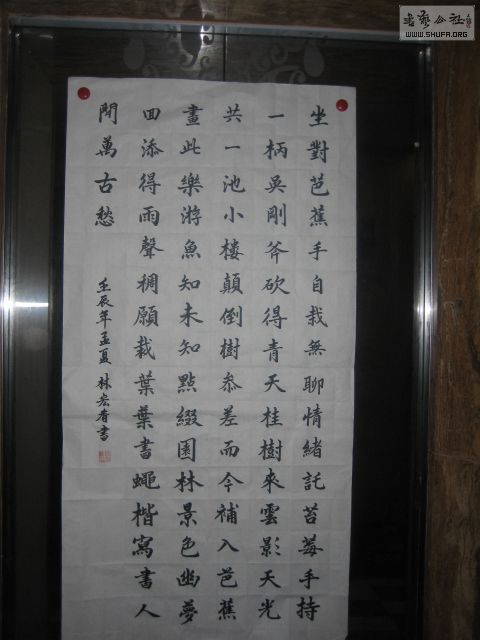 坐對芭蕉手自栽無聊情緒託苔莓手持
一柄吳剛斧砍得青天桂樹來雲影天光
共一池小樓顛倒樹參差而今補入芭蕉
畫此樂游魚知未知點綴園林景色幽夢
回添得雨聲稠願裁葉葉書蠅楷寫書人
間萬古愁
壬辰年孟夏 林宏有書
书艺公社
WWW.SHUFA.ORG